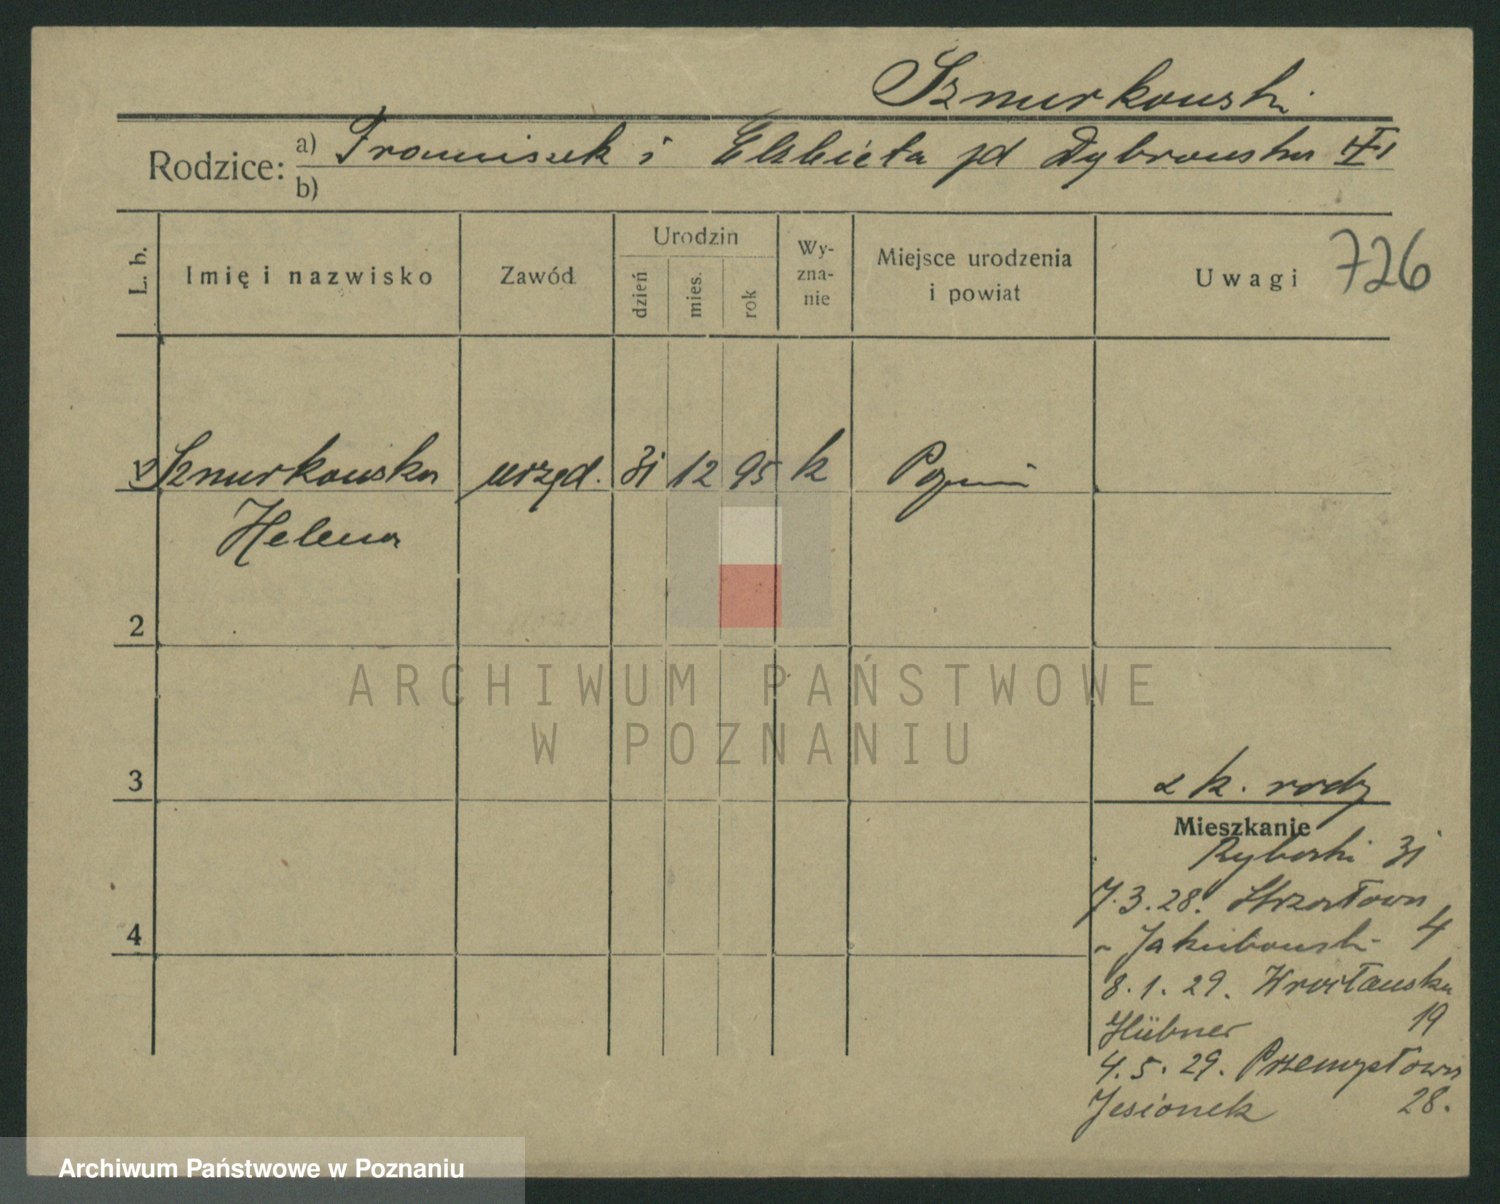 Sznurkowski
Rodzice: a) Franciszek i Elżbieta zd Dybrowska
b)
L. b. Imię i nazwisko Zawód Urodzin dzień mies. rok Wy-zna-nie Miejsce urodzenia i powiat Uwagi 726
1 Sznurkowska urzęd. 31 12 95 k Poznań
Helena
2
ARCHIWUM PAŃSTWOWE
W POZNANIU
3
k. rodz
Mieszkanie
Rybaki 31
4
7.3.28. Strzałowa
Jakubowski 4
8.1.29. Wrocławska
Hübner 19
4.5.29. Przemysłowa
Jesionek 28.
Archiwum Państwowe w Poznaniu